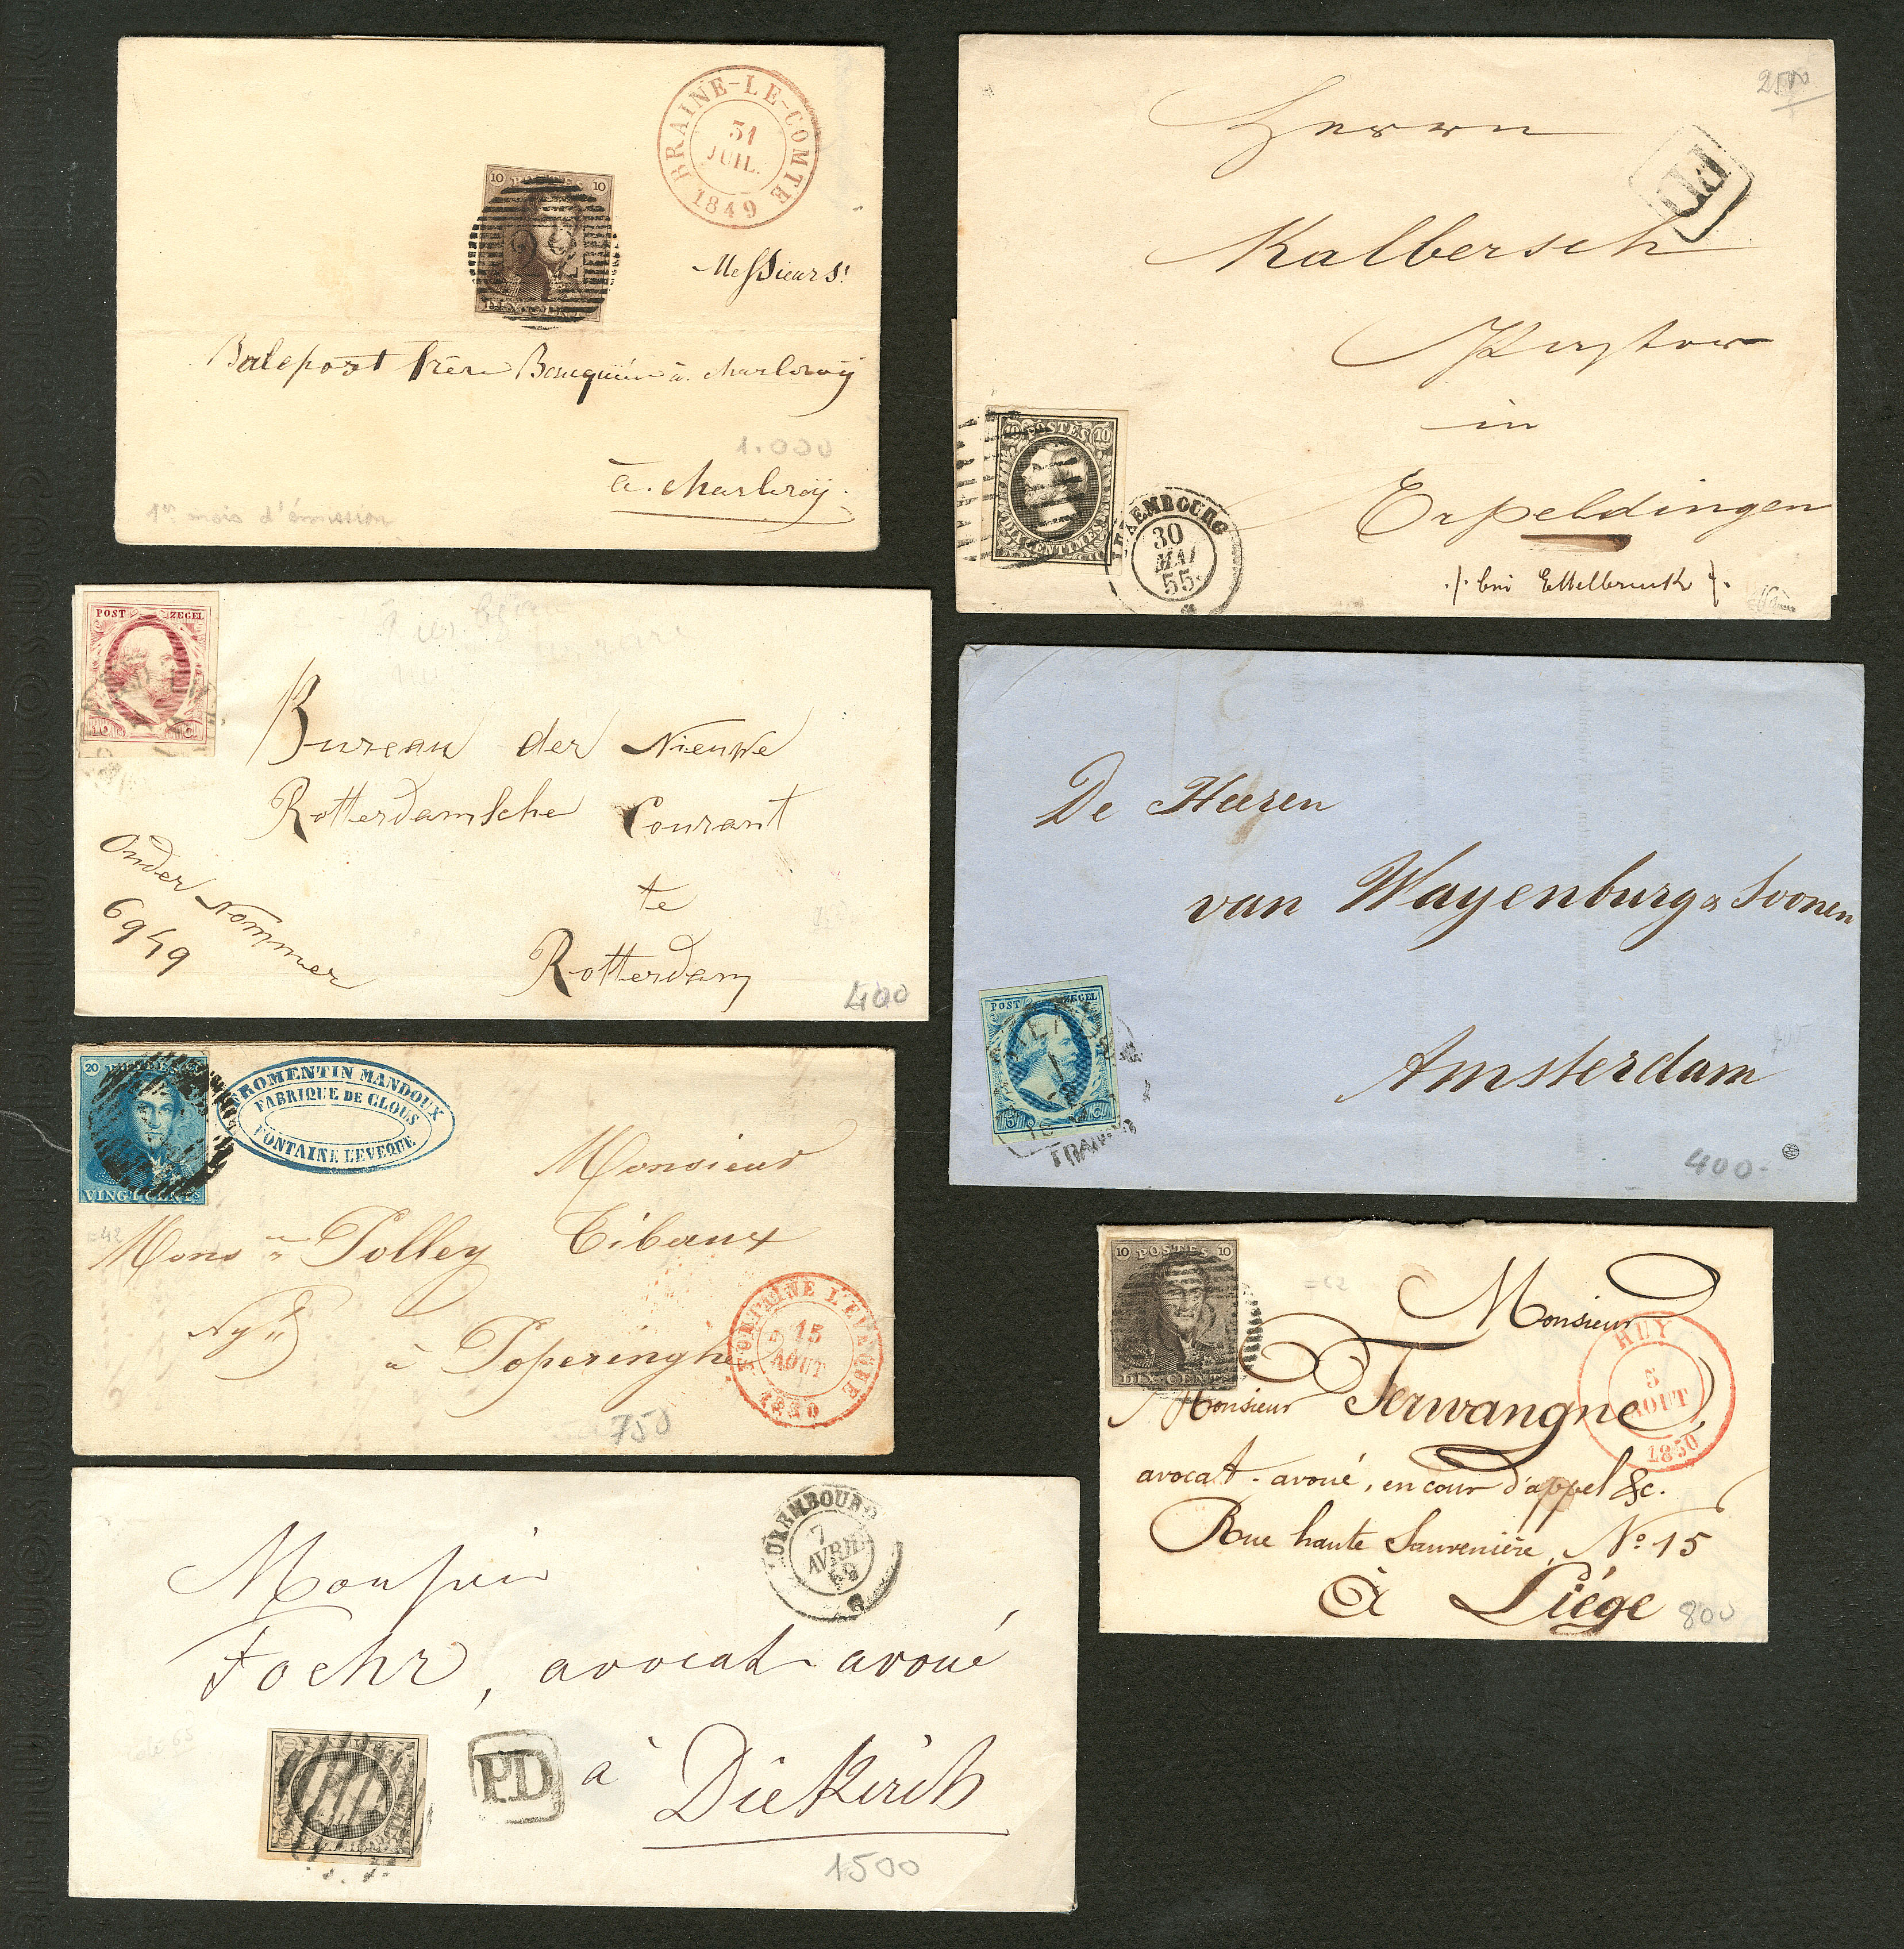 BRAINE-LE-COMTE
31
JUIL.
1849
10 POSTES 10
Messieurs
frère Banquiers à charleroÿ
1.000
à charleroÿ.
1er mois d'émission
2500
Herrn
PD
Kalbersch
Pastor
in
Erpeldingen
./. bei Ettelbruck ./.
10 POSTES 10
DIX CENTIMES
LUXEMBOURG
30
MAI
55
POST ZEGEL
10 C.
Bureau der Nieuwe
Rotterdamsche Courant
te
Rotterdam
Onder Nommer
6949
400
De Heeren
van Wayenburg & Soonen
Amsterdam
POST ZEGEL
5 C.
FRANCO
400-
20 POSTES
VINGT CENTS
FROMENTIN MANDOUX
FABRIQUE DE CLOUS
FONTAINE L'EVEQUE
Monsieur
Tibaux
à Poperinghe
FONTAINE L'EVEQUE
15
AOUT
1850
750
10 POSTES 10
DIX CENTS
Monsieur
Monsieur Terwangne,
avocat-avoué, en cour d'appel &c.
Rue haute Sauvenière, No 15
à Liége
HUY
AOUT
1850
800
LUXEMBOURG
7
AVRIL
59
Monsieur
Foehr, avocat-avoué
P.D
à
Diekirch
1500